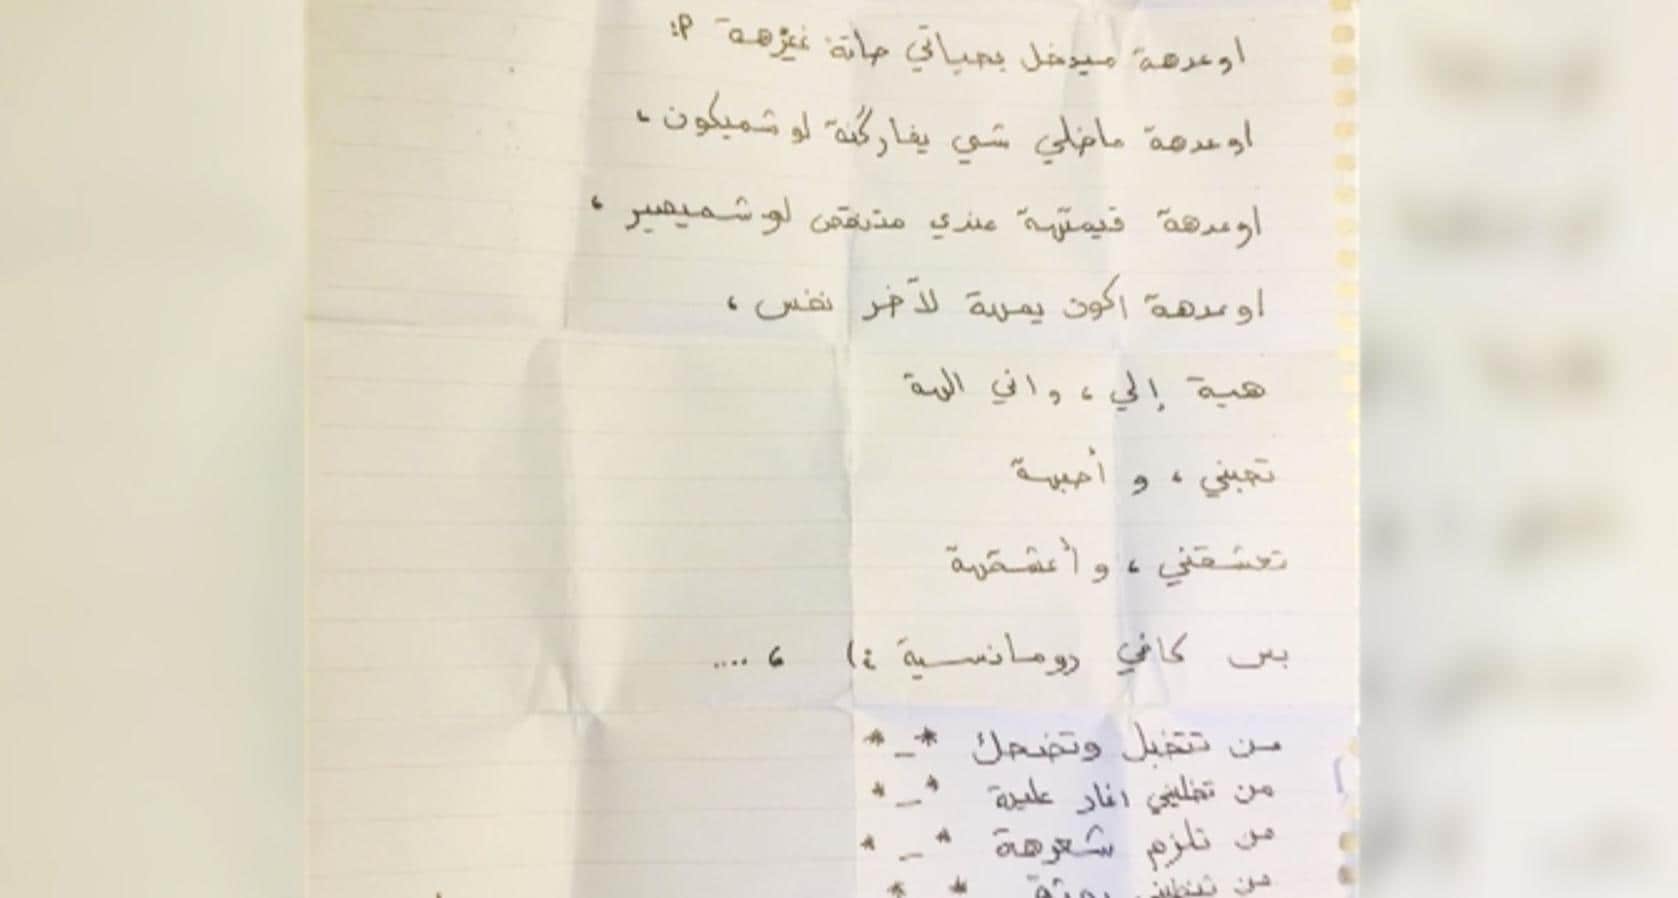 اوعدهة ميدخل بحياتي حاتة غيرهة :P
اوعدهة ماخلي شي يفارگنة لو شميكون ،
اوعدهة قيمتهة عندي متنقص لو شميصير ،
اوعدهة اكون يمهة لآخر نفس ،
هية إلي ، واني الهة
تحبني ، و أحبهة
تعشقني ، و أعشقهة
بس كافي رومانسية :) ، ....
من تتخبل وتضحك *_*
من تخليني اغار عليهة *_*
من تلزم شعرهة *_*
من